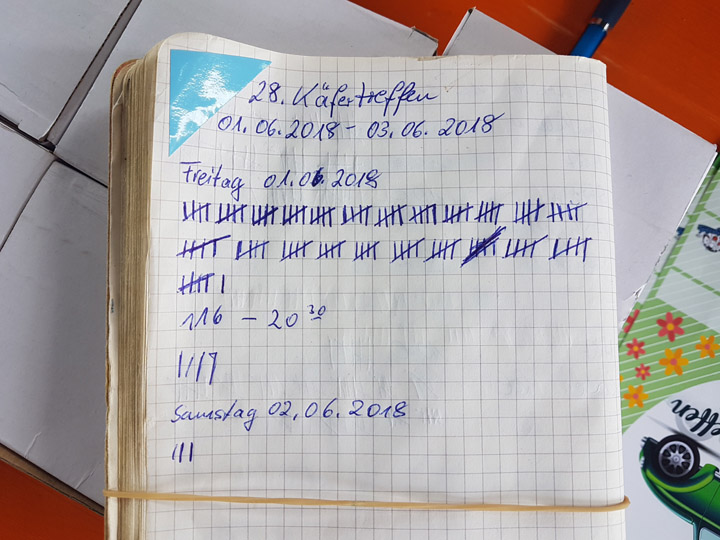 28. Käfertreffen
01.06.2018 - 03.06.2018
Freitag 01.06.2018
116 - 20 30
Samstag 02.06.2018
effen